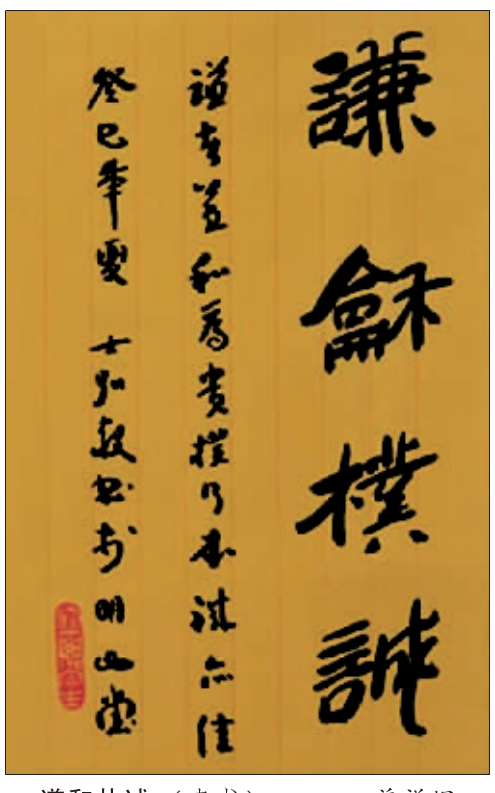 謙龢樸誠
謙有益和為貴樸乃本誠亦佳
癸巳年夏 士弘敬書於明山堂